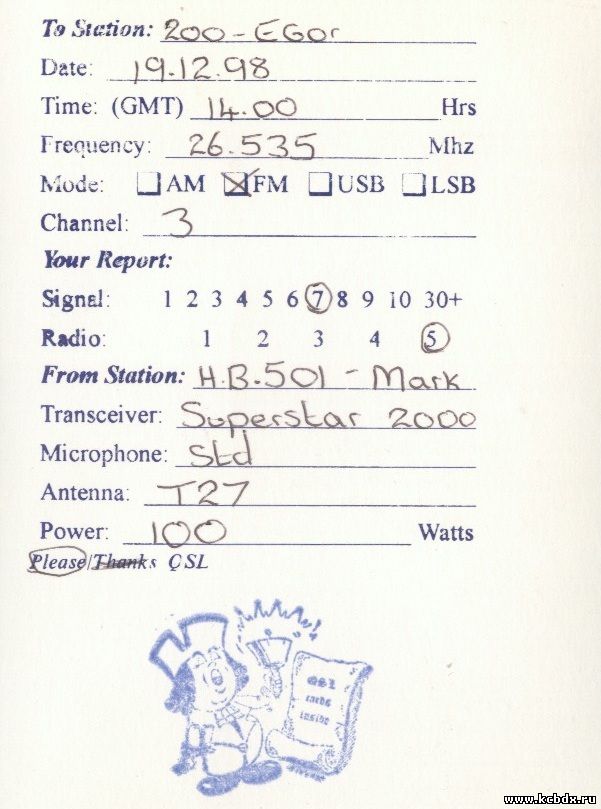 To Station: 200 - EGor
Date: 19.12.98
Time: (GMT) 14.00 Hrs
Frequency: 26.535 Mhz
Mode: AM FM USB LSB
Channel: 3
Your Report:
Signal: 1 2 3 4 5 6 7 8 9 10 30+
Radio: 1 2 3 4 5
From Station: H.B.501 - Mark
Transceiver: Superstar 2000
Microphone: Std
Antenna: T27
Power: 100 Watts
Please/Thanks QSL
QSL
cards
inside
www.kcbdx.ru